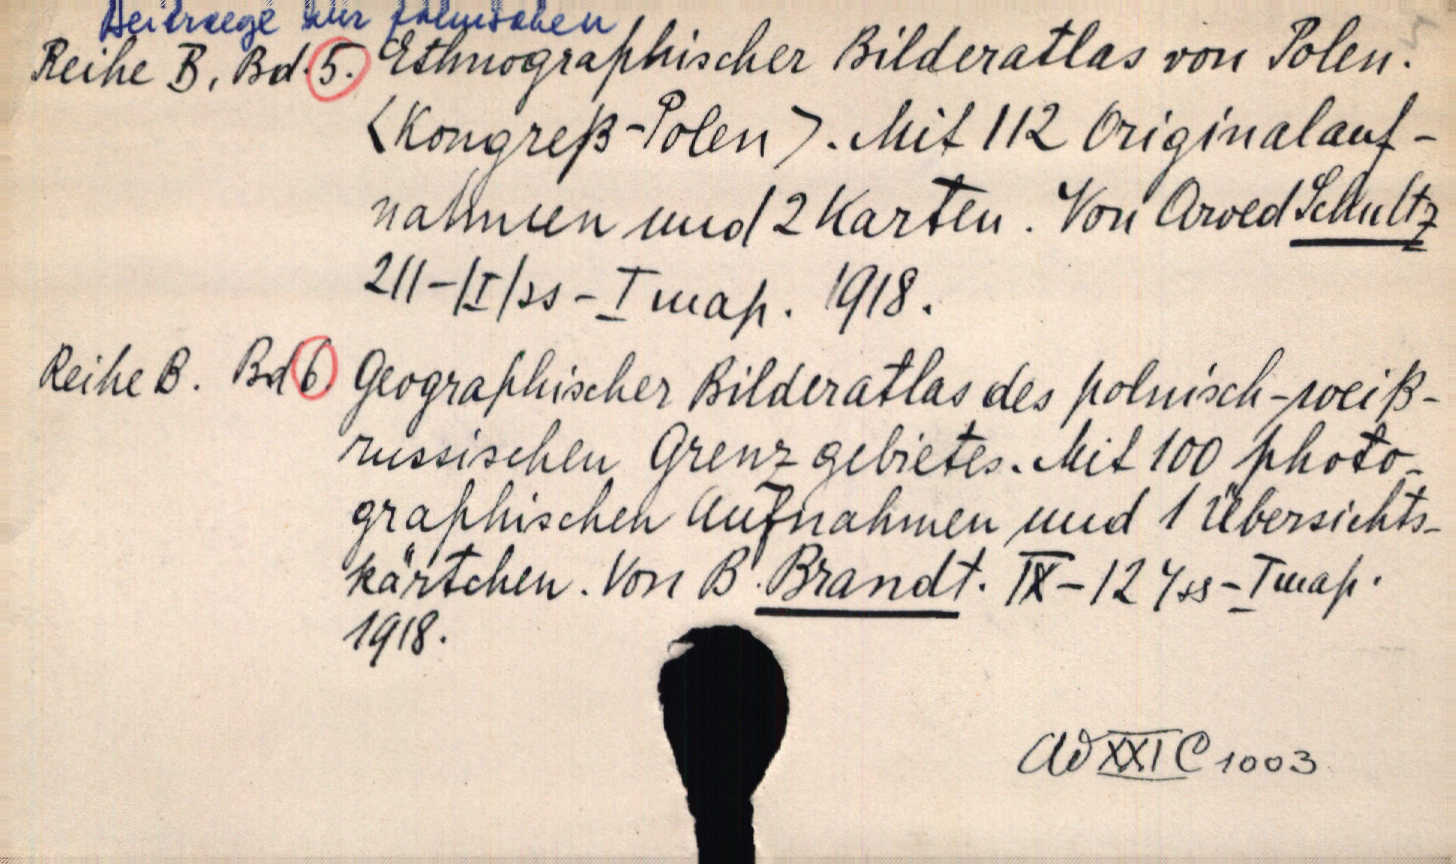 Beitraege zur polnischen
Reihe B, Bd. 5. Ethnographischer Bilderatlas von Polen.
<Kongreß-Polen>. Mit 112 Originalauf-
nahmen und 2 Karten. Von Arved Schultz
211-|I|ss-I map. 1918.
Reihe B. Bd 6. Geographischer Bilderatlas des polnisch-weiß-
russischen Grenzgebietes. Mit 100 photo-
graphischen Aufnahmen und 1 Übersichts-
kärtchen. Von B. Brandt. IX-124ss-I map.
1918.
Ad XXI C 1003